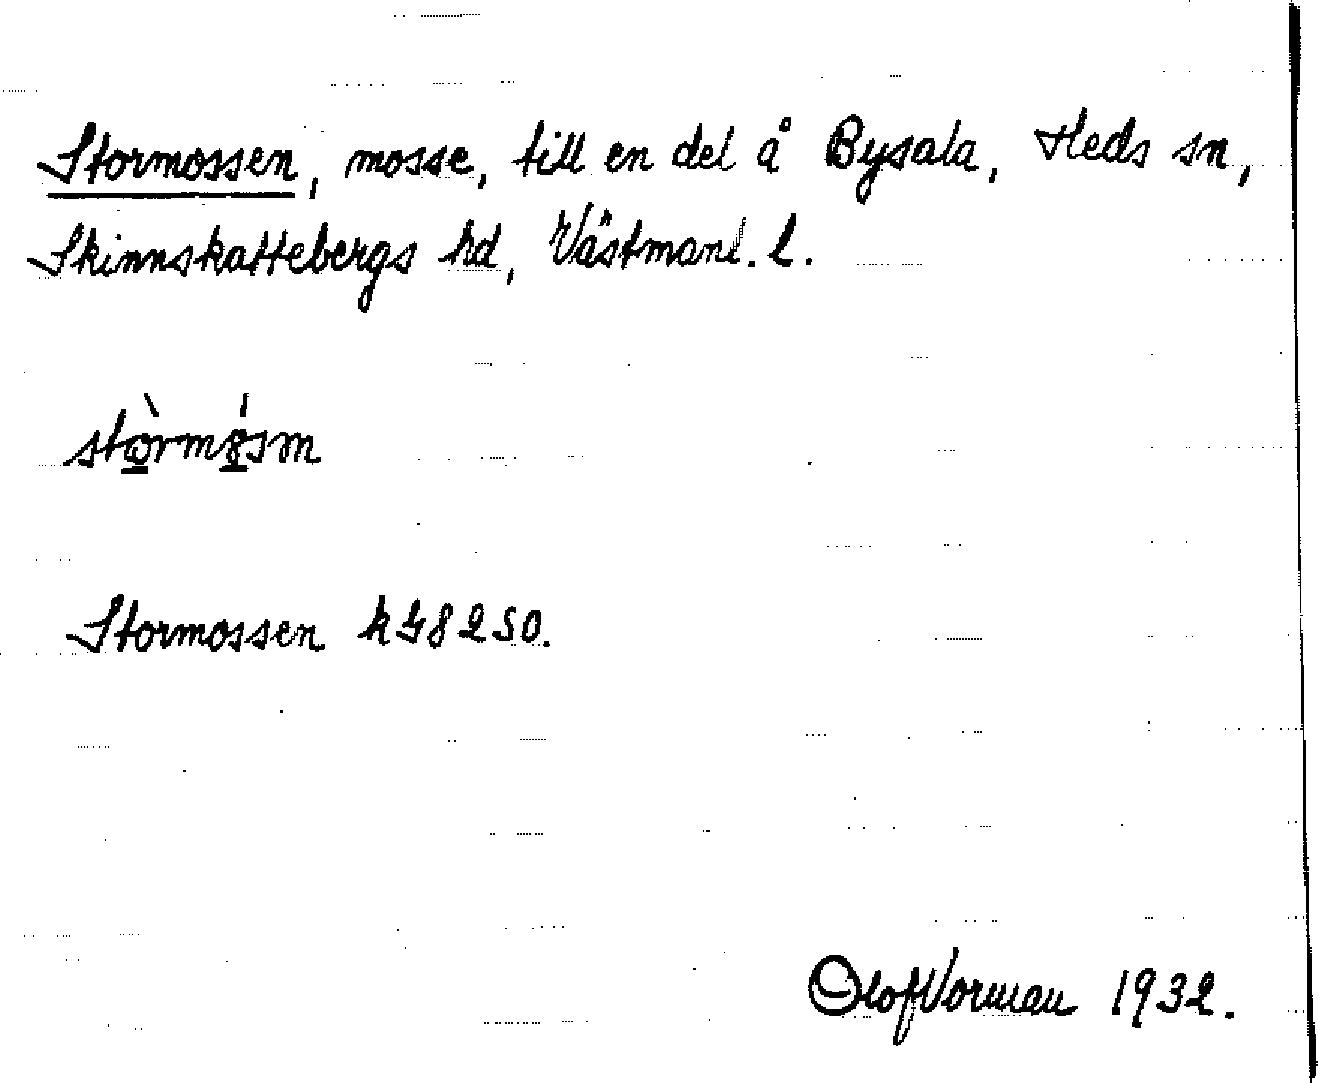 Stormossen, mosse, till en del å Bysala, Heds sn,
Skinnskattebergs hd, Västmanl. l.
Stormossen
Olof Vorman 1932.